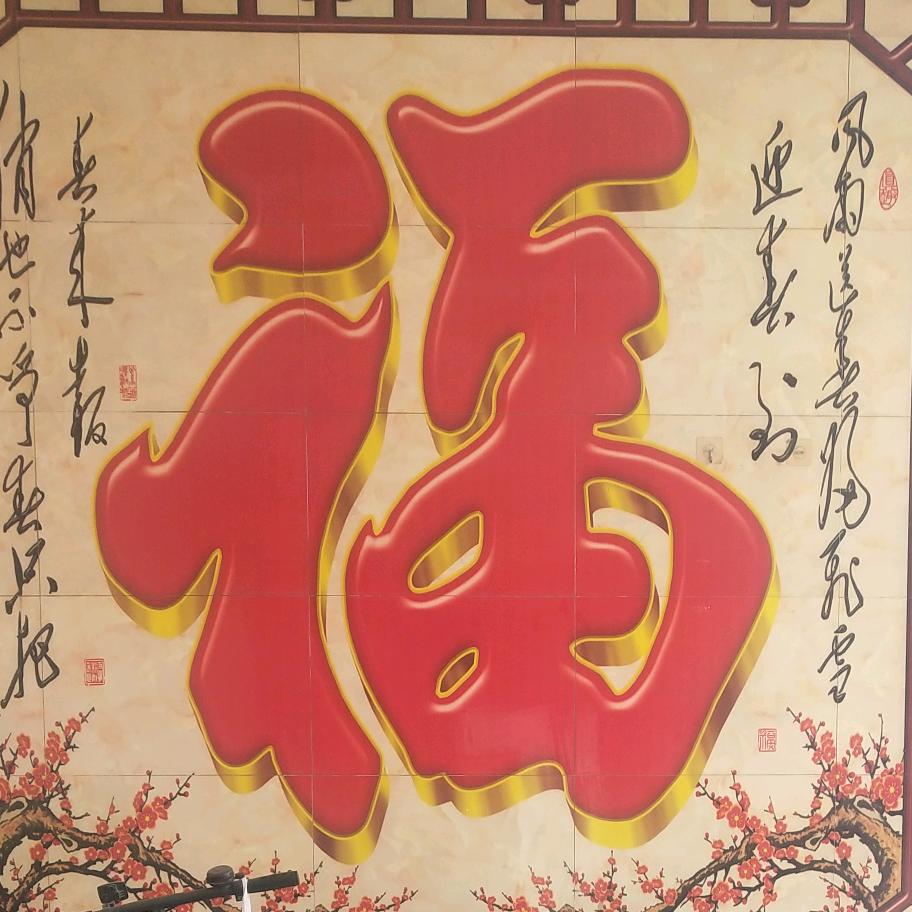 福
风雨送春归飞雪
迎春到
俏也不争春只把
春来报